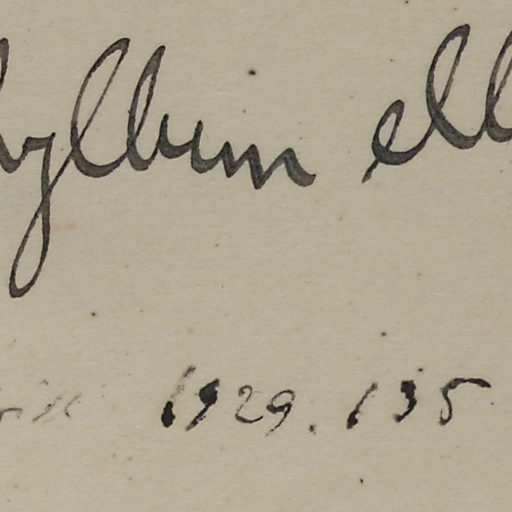 hyllum ell
1929. 135